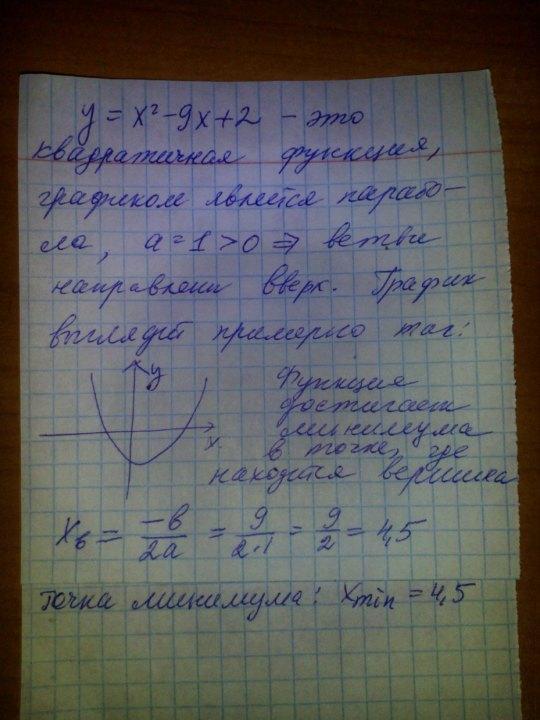 y = x² - 9x + 2 - это
квадратичная функция,
графиком явлеется парабо-
ла, a = 1 > 0 ⇒ ветви
направлены вверх. График
выглядит примерно так:
y
x
Функция
достигает
минимума
в точке, где
находится вершина
xв = -b/2a = 9/2·1 = 9/2 = 4,5
точка минимума: xmin = 4,5